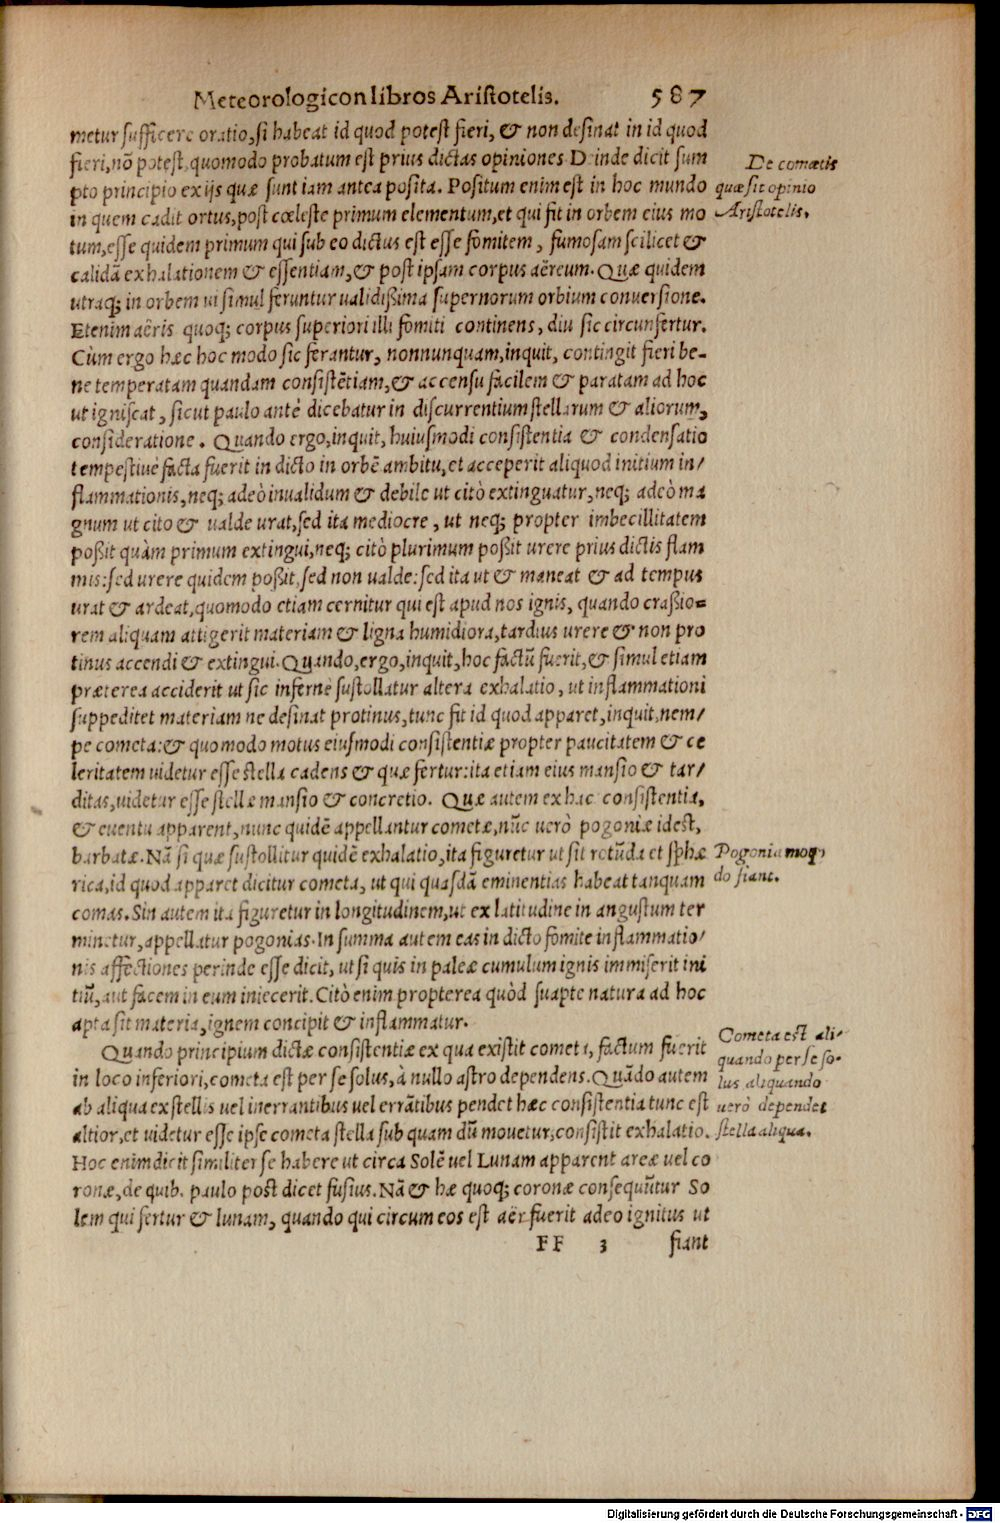 Meteorologicon libros Aristotelis. 587
metur sufficere oratio, si habeat id quod potest fieri, & non desinat in id quod
fieri, nõ potest, quomodo probatum est prius dictas opiniones. Deinde dicit sum
pto principio ex ijs quæ sunt iam antea posita. Positum enim est in hoc mundo
in quem cadit ortus, post cœleste primum elementum, et qui fit in orbem eius mo
tum, esse quidem primum qui sub eo dictus est esse fomitem, fumosam scilicet &
calidã exhalationem & essentiam, & post ipsam corpus aëreum. Quæ quidem
utraq; in orbem ui simul feruntur ualidißima supernorum orbium conuersione.
Etenim aëris quoq; corpus superiori illi fomiti continens, diu sic circunfertur.
Cùm ergo hæc hoc modo sic ferantur, nonnunquam, inquit, contingit fieri be-
ne temperatam quandam consistẽtiam, & accensu facilem & paratam ad hoc
ut igniscat, sicut paulo antè dicebatur in discurrentium stellarum & aliorum,
consideratione. Quando ergo, inquit, huiusmodi consistentia & condensatio
tempestiuè facta fuerit in dicto in orbẽ ambitu, et acceperit aliquod initium in/
flammationis, neq; adeò inualidum & debile ut citò extinguatur, neq; adeò ma
gnum ut cito & ualde urat, sed ita mediocre, ut neq; propter imbecillitatem
poßit quàm primum extingui, neq; citò plurimum poßit urere prius dictis flam
mis: sed urere quidem poßit, sed non ualde: sed ita ut & maneat & ad tempus
urat & ardeat, quomodo etiam cernitur qui est apud nos ignis, quando craßio=
rem aliquam attigerit materiam & ligna humidiora, tardius urere & non pro
tinus accendi & extingui. Quando, ergo, inquit, hoc factũ fuerit, & simul etiam
præterea acciderit ut sic infernè sustollatur altera exhalatio, ut inflammationi
suppeditet materiam ne desinat protinus, tunc fit id quod apparet, inquit, nem/
pe cometa: & quomodo motus eiusmodi consistentiæ propter paucitatem & ce
leritatem uidetur esse stella cadens & quæ fertur: ita etiam eius mansio & tar/
ditas, uidetur esse stellæ mansio & concretio. Quæ autem ex hac consistentia,
& euentu apparent, nunc quidẽ appellantur cometæ, nũc uerò pogoniæ idest,
barbatæ. Nã si quæ sustollitur quidẽ exhalatio, ita figuretur ut sit rotũda et sphæ
rica, id quod apparet dicitur cometa, ut qui quasdã eminentias habeat tanquam
comas. Sin autem ita figuretur in longitudinem, ut ex latitudine in angustum ter
minetur, appellatur pogonias. In summa autem eas in dicto fomite inflammatio/
nis affectiones perinde esse dicit, ut si quis in paleæ cumulum ignis immiserit ini
tiũ, aut facem in eum iniecerit. Citò enim propterea quòd suapte natura ad hoc
apta sit materia, ignem concipit & inflammatur.
Quando principium dictæ consistentiæ ex qua existit cometa, factum fuerit
in loco inferiori, cometa est per se solus, à nullo astro dependens. Quãdo autem
ab aliqua ex stellis uel inerrantibus uel errãtibus pendet hæc consistentia tunc est
altior, et uidetur esse ipse cometa stella sub quam dũ mouetur, consistit exhalatio.
Hoc enim dicit similiter se habere ut circa Solẽ uel Lunam apparent areæ uel co
ronæ, de quib. paulo post dicet fusius. Nã & hæ quoq; coronæ consequũtur So
lem qui fertur & lunam, quando qui circum eos est aër fuerit adeo ignitus ut
FF 3 fiant
De cometis
quæ sit opinio
Aristotelis.
Pogonia moq
do fiant.
Cometa est ali-
quando per se so-
lus aliquando
uerò dependet
stella aliqua.
Digitalisierung gefördert durch die Deutsche Forschungsgemeinschaft - DFG